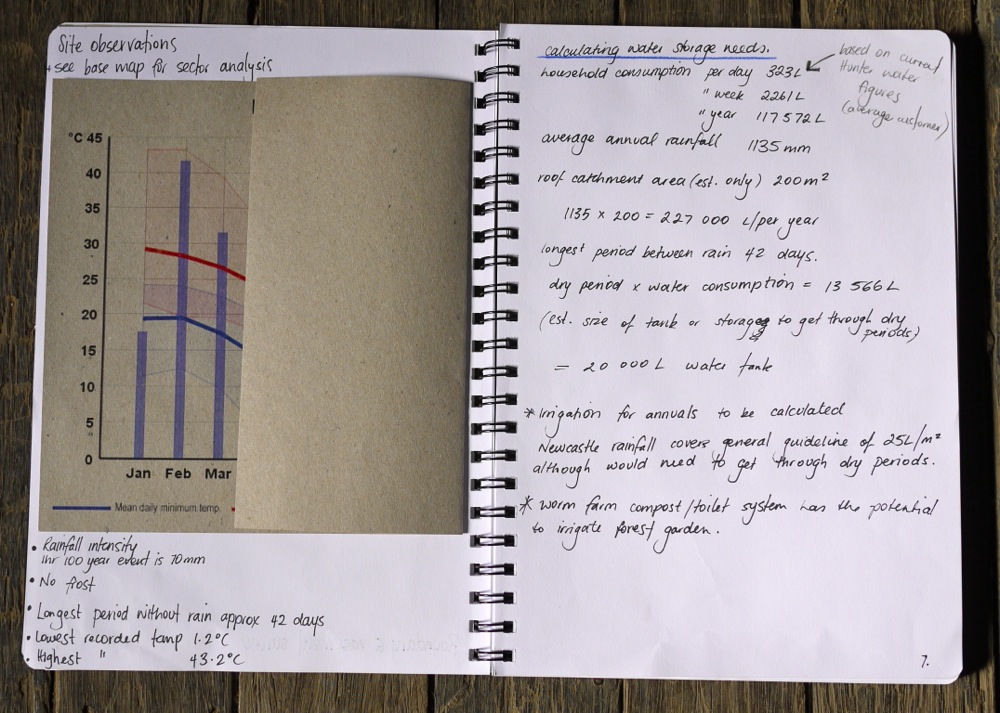 Site observations
+ see base map for sector analysis
°C 45
40
35
30
25
20
15
10
5
0
Jan Feb Mar
Mean daily minimum temp.
• Rainfall intensity
1hr 100 year event is 70mm
• No frost
• Longest period without rain approx 42 days
• Lowest recorded temp 1.2°C
• Highest " 43.2°C
calculating water storage needs.
household consumption per day 323L
" week 2261L
" year 117 572 L
based on current
Hunter water
figures
(average customer)
average annual rainfall 1135 mm
roof catchment area (est. only) 200m²
1135 x 200 = 227 000 L/per year
longest period between rain 42 days.
dry period x water consumption = 13 566 L
(est. size of tank or storage to get through dry
periods)
= 20 000 L water tank
* Irrigation for annuals to be calculated
Newcastle rainfall covers general guideline of 25L/m²
although would need to get through dry periods.
* worm farm compost/toilet system has the potential
to irrigate forest garden.
7.